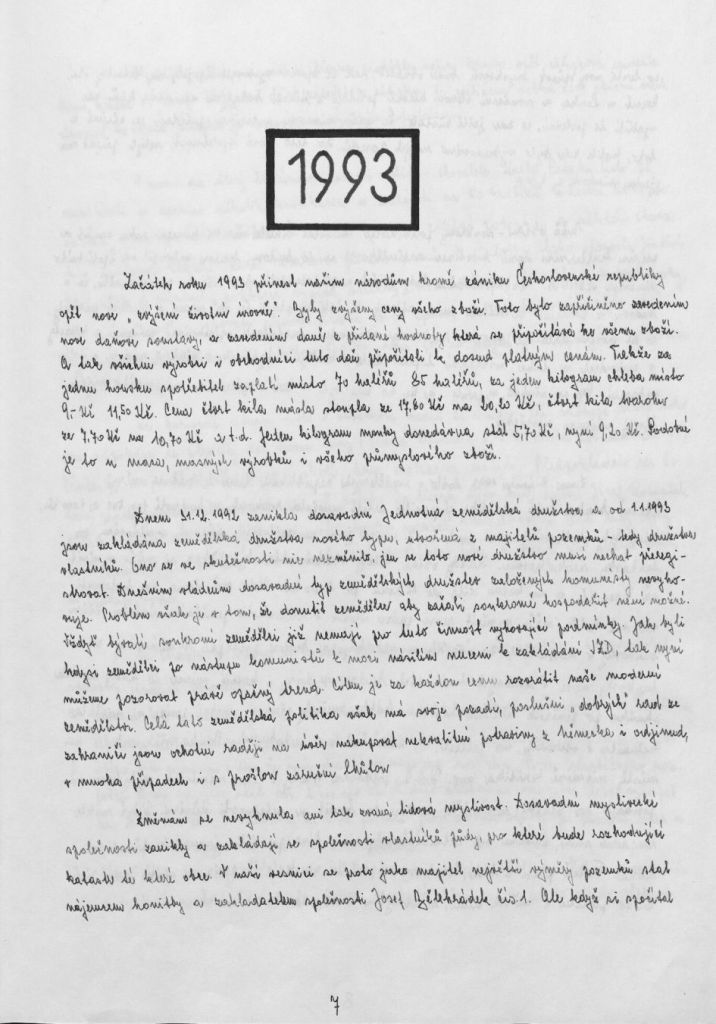 1993
Začátek roku 1993 přinesl našim národům kromě zániku Československé republiky
opět nové „zvýšení životní úrovně“. Byly zvýšeny ceny všeho zboží. Toto bylo zapříčiněno zavedením
nové daňové soustavy, a zavedením daně z přidané hodnoty která se připočítává ke všemu zboží.
A tak všichni výrobci i obchodníci tuto daň připočítali k dosud platným cenám. Takže za
jednu housku spotřebitel zaplatí místo 70 haléřů 85 haléřů, za jeden kilogram chleba místo
9,- Kč 11,50 Kč. Cena čtvrt kila másla stoupla ze 17,80 Kč na 20,20 Kč, čtvrt kila tvarohu
ze 7,70 Kč na 10,70 Kč a t.d. Jeden kilogram mouky donedávna stál 5,70 Kč, nyní 9,20 Kč. Podobně
je to u masa, masných výrobků i všeho průmyslového zboží.
Dnem 31.12.1992 zanikla dosavadní Jednotná zemědělská družstva a od 1.1.1993
jsou zakládána zemědělská družstva nového typu, utvořená z majitelů pozemků - tedy družstva
vlastníků. Ono se ve skutečnosti nic nezměnilo, jen se toto nové družstvo musí nechat přeregi-
strovat. Dnešním vládcům dosavadní typ zemědělských družstev založených komunisty nevyho-
vuje. Problém však je v tom, že donutit zemědělce aby začali soukromě hospodařit není možné.
Vždyť bývalí soukromí zemědělci již nemají pro tuto činnost vyhovující podmínky. Jak byli
kdysi zemědělci po nástupu komunistů k moci násilím nuceni k zakládání JZD, tak nyní
můžeme pozorovat právě opačný trend. Cílem je za každou cenu rozvrátit naše moderní
zemědělství. Celá tato zemědělská politika však má svoje pozadí, poslušni „dobrých“ rad ze
zahraničí jsou ochotni raději na úvěr nakupovat nekvalitní potraviny z Německa i odjinud,
v mnoha případech i s prošlou záruční lhůtou
Změnám se nevyhnula ani tak zvaná lidová myslivost. Dosavadní myslivecké
společnosti zanikly a zakládají se společnosti vlastníků půdy, pro které bude rozhodující
katastr té které obce. V naší vesnici se proto jako majitel největší výměry pozemků stal
nájemcem honitby a zakladatelem společnosti Josef Bělehrádek čís. 1. Ale když si spočítal
7